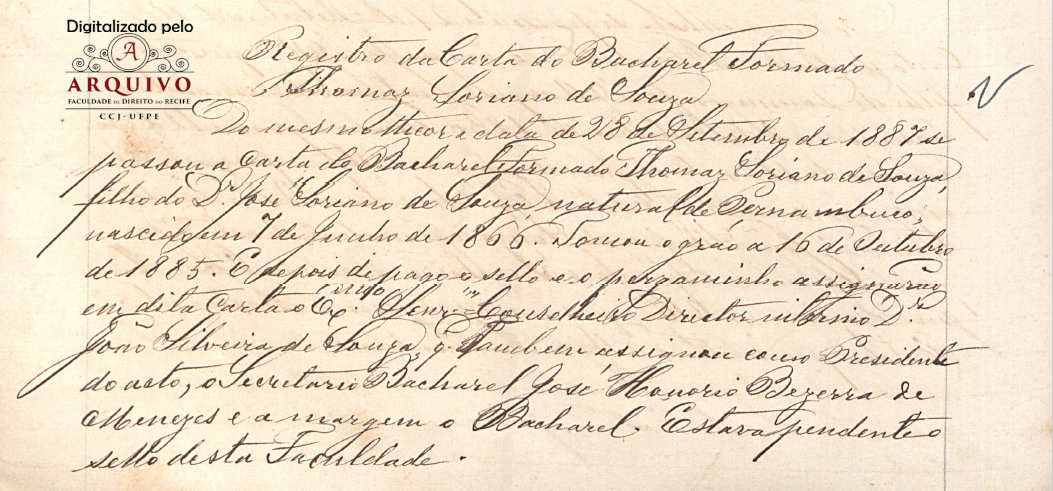 Digitalizado pelo
A
ARQUIVO
FACULDADE DE DIREITO DO RECIFE
CCJ-UFPE
Registro da Carta do Bacharel Formado
Thomaz Soriano de Souza
Do mesmo theor e data de 28 de Setembro de 1887 se
passou a Carta do Bacharel Formado Thomaz Soriano de Souza,
filho do Dr. José Soriano de Souza, natural de Pernambuco,
nascido em 7 de Junho de 1866. Tomou o gráo a 16 de Outubro
de 1885. E depois de pago o sello e o pergaminho assignarão
em dita Carta o Exmo. Senr. Conselheiro Director interino Dr.
João Silveira de Souza, q. tambem assignou como Presidente
do acto, o Secretario Bacharel José Honorio Bezerra de
Menezes e a margem o Bacharel. Estava pendente o
sello desta Faculdade.